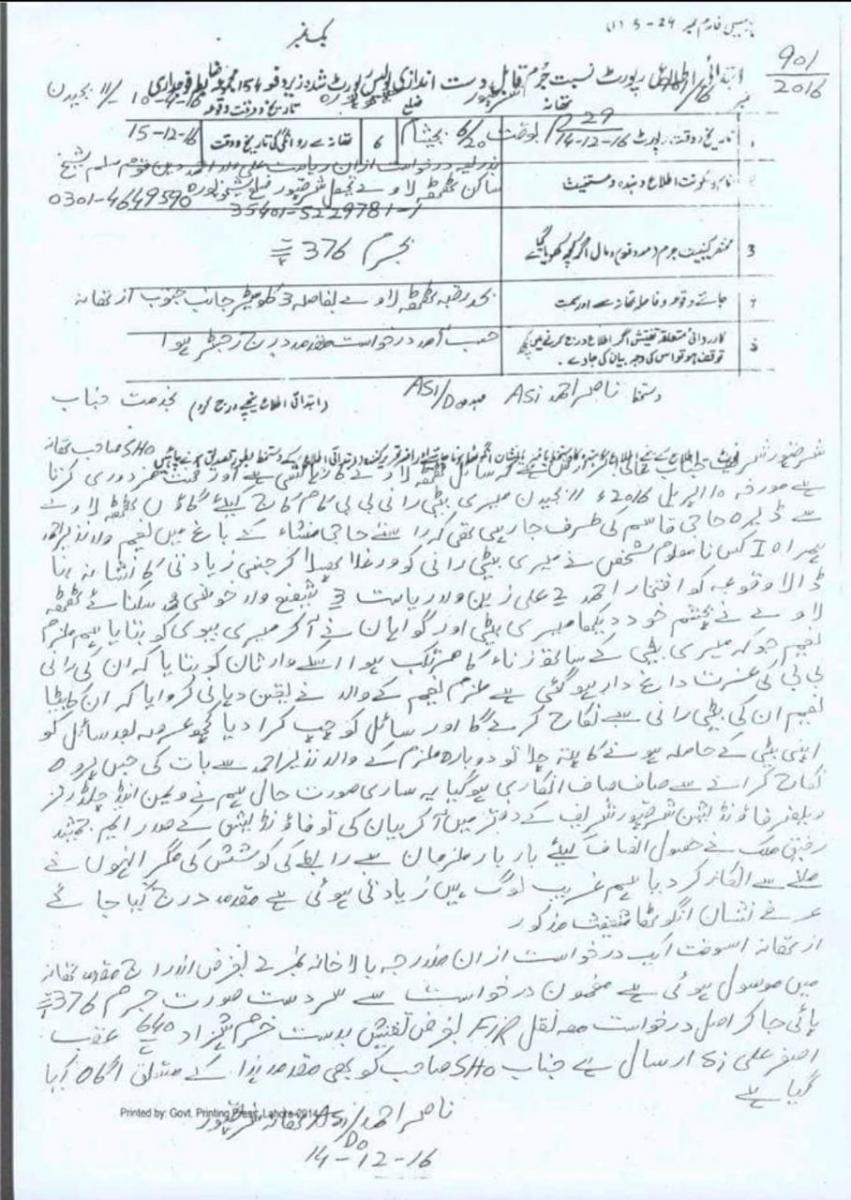 پولیس فارم نمبر 24-5 (1)
بک نمبر
901/2016
ابتدائی اطلاعی رپورٹ نسبت جرم قابل دست اندازی پولیس رپورٹ شدہ زیر دفعہ 154 مجموعہ ضابطہ فوجداری
تھانہ شرقپور ضلع شیخوپورہ تاریخ و وقت وقوعہ 10-4-16 11/ بجے دن
1 تاریخ و وقت رپورٹ 29 14-12-16 بوقت 6/20 بجے شام 6 تھانہ سے روانگی کی تاریخ و وقت 15-12-16
2 نام و سکونت اطلاع دہندہ و مستغیث بذریعہ درخواست ازان ریاست علی ولد احمد دین قوم مسلم شیخ
ساکن لاوے تحصیل شرقپور ضلع شیخوپورہ 0301-4649590
35401-5229781-1
3 مختصر کیفیت جرم (معہ دفعہ) و مال اگر کچھ کھویا گیا ہے بجرم 376 ت پ
4 جائے وقوعہ و فاصلہ تھانہ سے اور سمت بحد رقبہ لاوے بفاصلہ 3 کلومیٹر جانب جنوب از تھانہ
5 کارروائی متعلقہ تفتیش اگر اطلاع درج کرنے میں کچھ توقف ہوا ہو تو اس کی وجہ بیان کی جاوے۔ حسب آمد درخواست مقدمہ درج رجسٹر ہوا
دستخط ناصر احمد ASI عہدہ ASI/Do
(ابتدائی اطلاع نیچے درج کرو) بخدمت جناب
SHO صاحب تھانہ شرقپور شریف جناب عالی گزارش ہے کہ سائل لاوے کا رہائشی ہے اور محنت مزدوری کرتا
ہے مورخہ 10 اپریل 2016ء 11 بجے دن میری بیٹی رانی بی بی کام کاج کیلئے گاؤں لاوے
سے ڈیرہ حاجی قاسم کی طرف جا رہی تھی کہ راستے حاجی منشاء کے باغ میں نعیم ولد نذیر احمد
ہمراہ 1 کس نامعلوم شخص نے میری بیٹی رانی کو ورغلا پھسلا کر جنسی زیادتی کا نشانہ بنا
ڈالا وقوعہ کو افتخار احمد 2 علی زین ولد ریاست 3 شفیع ولد خوشی محمد سکنائے
لاوے نے بچشم خود دیکھا میری بیٹی اور گواہان نے آ کر میری بیوی کو بتایا ہم ملزم
نعیم جو کہ میری بیٹی کے ساتھ زناء کا مرتکب ہوا اسکے وارثان کو بتایا کہ ان کی رانی
بی بی کی عزت داغ دار ہو گئی ہے ملزم نعیم کے والد نے یقین دہانی کروایا کہ ان کا بیٹا
نعیم ان کی بیٹی رانی سے نکاح کرے گا اور سائل کو چپ کرا دیا کچھ عرصہ بعد سائل کو
اپنی بیٹی کے حاملہ ہونے کا پتہ چلا تو دوبارہ ملزم کے والد نذیر احمد سے بات کی جس پر وہ
نکاح کرانے سے صاف صاف انکاری ہو گیا یہ ساری صورت حال ہم نے ویمن اینڈ چلڈرنز
ویلفیئر فاؤنڈیشن شرقپور شریف کے دفتر میں آ کر بیان کی تو فاؤنڈیشن کے صدر ایم جمشید
رفیق ملک نے حصول انصاف کیلئے بار بار ملزمان سے رابطے کی کوشش کی مگر انہوں نے
ملنے سے انکار کر دیا ہم غریب لوگ ہیں زیادتی ہوئی ہے مقدمہ درج کیا جائے
عرضے نشان انگوٹھا مستغیث مذکور
از تھانہ اسوقت ایک درخواست ازان مندرجہ بالا خانہ نمبر 2 بغرض اندراج مقدمہ تھانہ
میں موصول ہوئی ہے مضمون درخواست سے سردست صورت جرم 376 ت پ
پائی جا کر اصل درخواست معہ نقل FIR بغرض تفتیش بدست خرم شہزاد 640/C عقب
اصغر علی SI ارسال ہے جناب SHO صاحب کو بھی مقدمہ ہذا کے متعلق آگاہ کیا
گیا ہے
Printed by: Govt. Printing Press, Lahore-2014
ناصر احمد ASI/Do تھانہ شرقپور
14-12-16